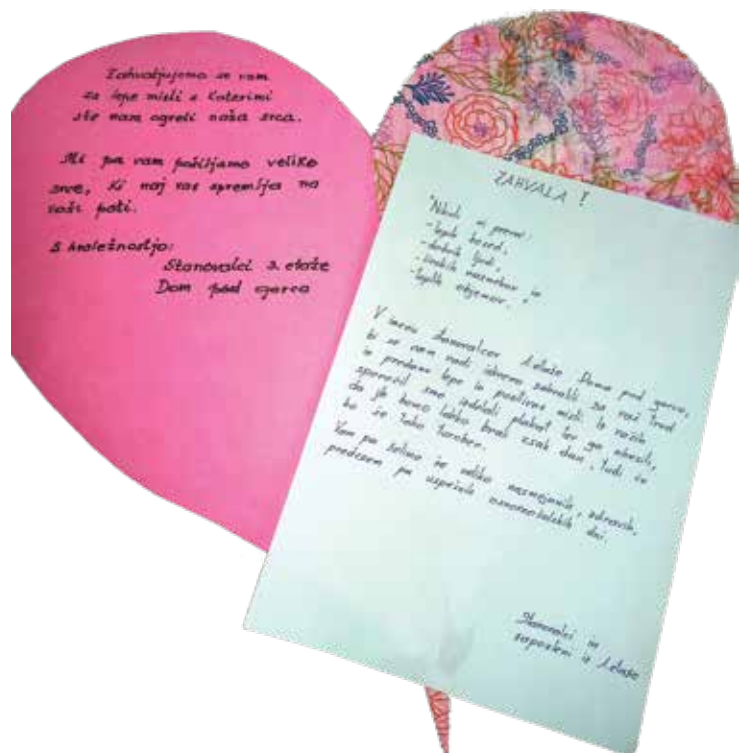 Zahvaljujemo se vam
za lepe misli s katerimi
ste nam ogreli naša srca.
Mi pa vam pošiljamo veliko
sreče, ki naj vas spremlja na
vaši poti.
S hvaležnostjo:
Stanovalci 3. etaže
Dom pod gorco
ZAHVALA !
"Nikoli ni preveč:
- lepih besed,
- dobrih ljudi,
- nasmehov in
- toplih objemov.
V imenu stanovalcev 1. etaže Doma pod gorco,
bi se vam radi iskreno zahvalili za vaš trud
in predane lepe in pozitivne misli. Iz vaših
sporočil smo izdelali plakat ter ga obesili,
da jih bomo lahko brali vsak dan, tudi če
bo še tako turoben.
Vam pa želimo še veliko nasmejanih, zdravih,
predvsem pa uspešnih osnovnošolskih dni.
Stanovalci in
zaposleni iz 1. etaže